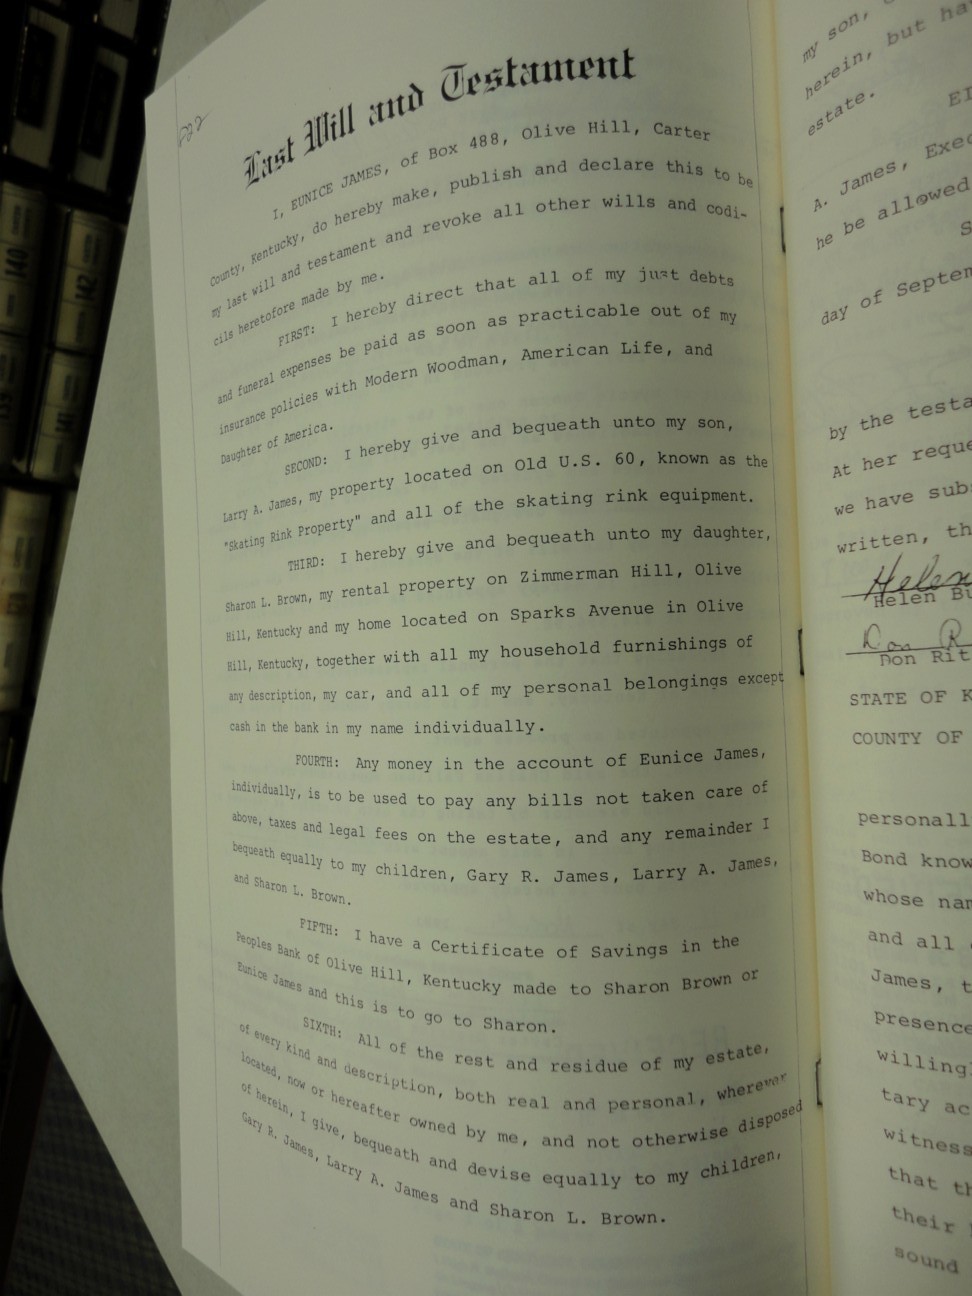 292
Last Will and Testament
I, EUNICE JAMES, of Box 488, Olive Hill, Carter
County, Kentucky, do hereby make, publish and declare this to be
my last will and testament and revoke all other wills and codi-
cils heretofore made by me.
FIRST: I hereby direct that all of my just debts
and funeral expenses be paid as soon as practicable out of my
insurance policies with Modern Woodman, American Life, and
Daughter of America.
SECOND: I hereby give and bequeath unto my son,
Larry A. James, my property located on Old U.S. 60, known as the
"Skating Rink Property" and all of the skating rink equipment.
THIRD: I hereby give and bequeath unto my daughter,
Sharon L. Brown, my rental property on Zimmerman Hill, Olive
Hill, Kentucky and my home located on Sparks Avenue in Olive
Hill, Kentucky, together with all my household furnishings of
any description, my car, and all of my personal belongings except
cash in the bank in my name individually.
FOURTH: Any money in the account of Eunice James,
individually, is to be used to pay any bills not taken care of
above, taxes and legal fees on the estate, and any remainder I
bequeath equally to my children, Gary R. James, Larry A. James,
and Sharon L. Brown.
FIFTH: I have a Certificate of Savings in the
Peoples Bank of Olive Hill, Kentucky made to Sharon Brown or
Eunice James and this is to go to Sharon.
SIXTH: All of the rest and residue of my estate,
of every kind and description, both real and personal, wherever
located, now or hereafter owned by me, and not otherwise disposed
of herein, I give, bequeath and devise equally to my children,
Gary R. James, Larry A. James and Sharon L. Brown.
my son,
herein, but ha
estate.
EI
A. James, Exec
he be allowed
S
day of Septem
by the testa
At her reque
we have subs
written, th
Helen
Helen Bu
Don R
Don Rit
STATE OF K
COUNTY OF
personall
Bond know
whose nam
and all
James, t
presence
willing
tary ac
witness
that th
their
sound
140
142
139
141